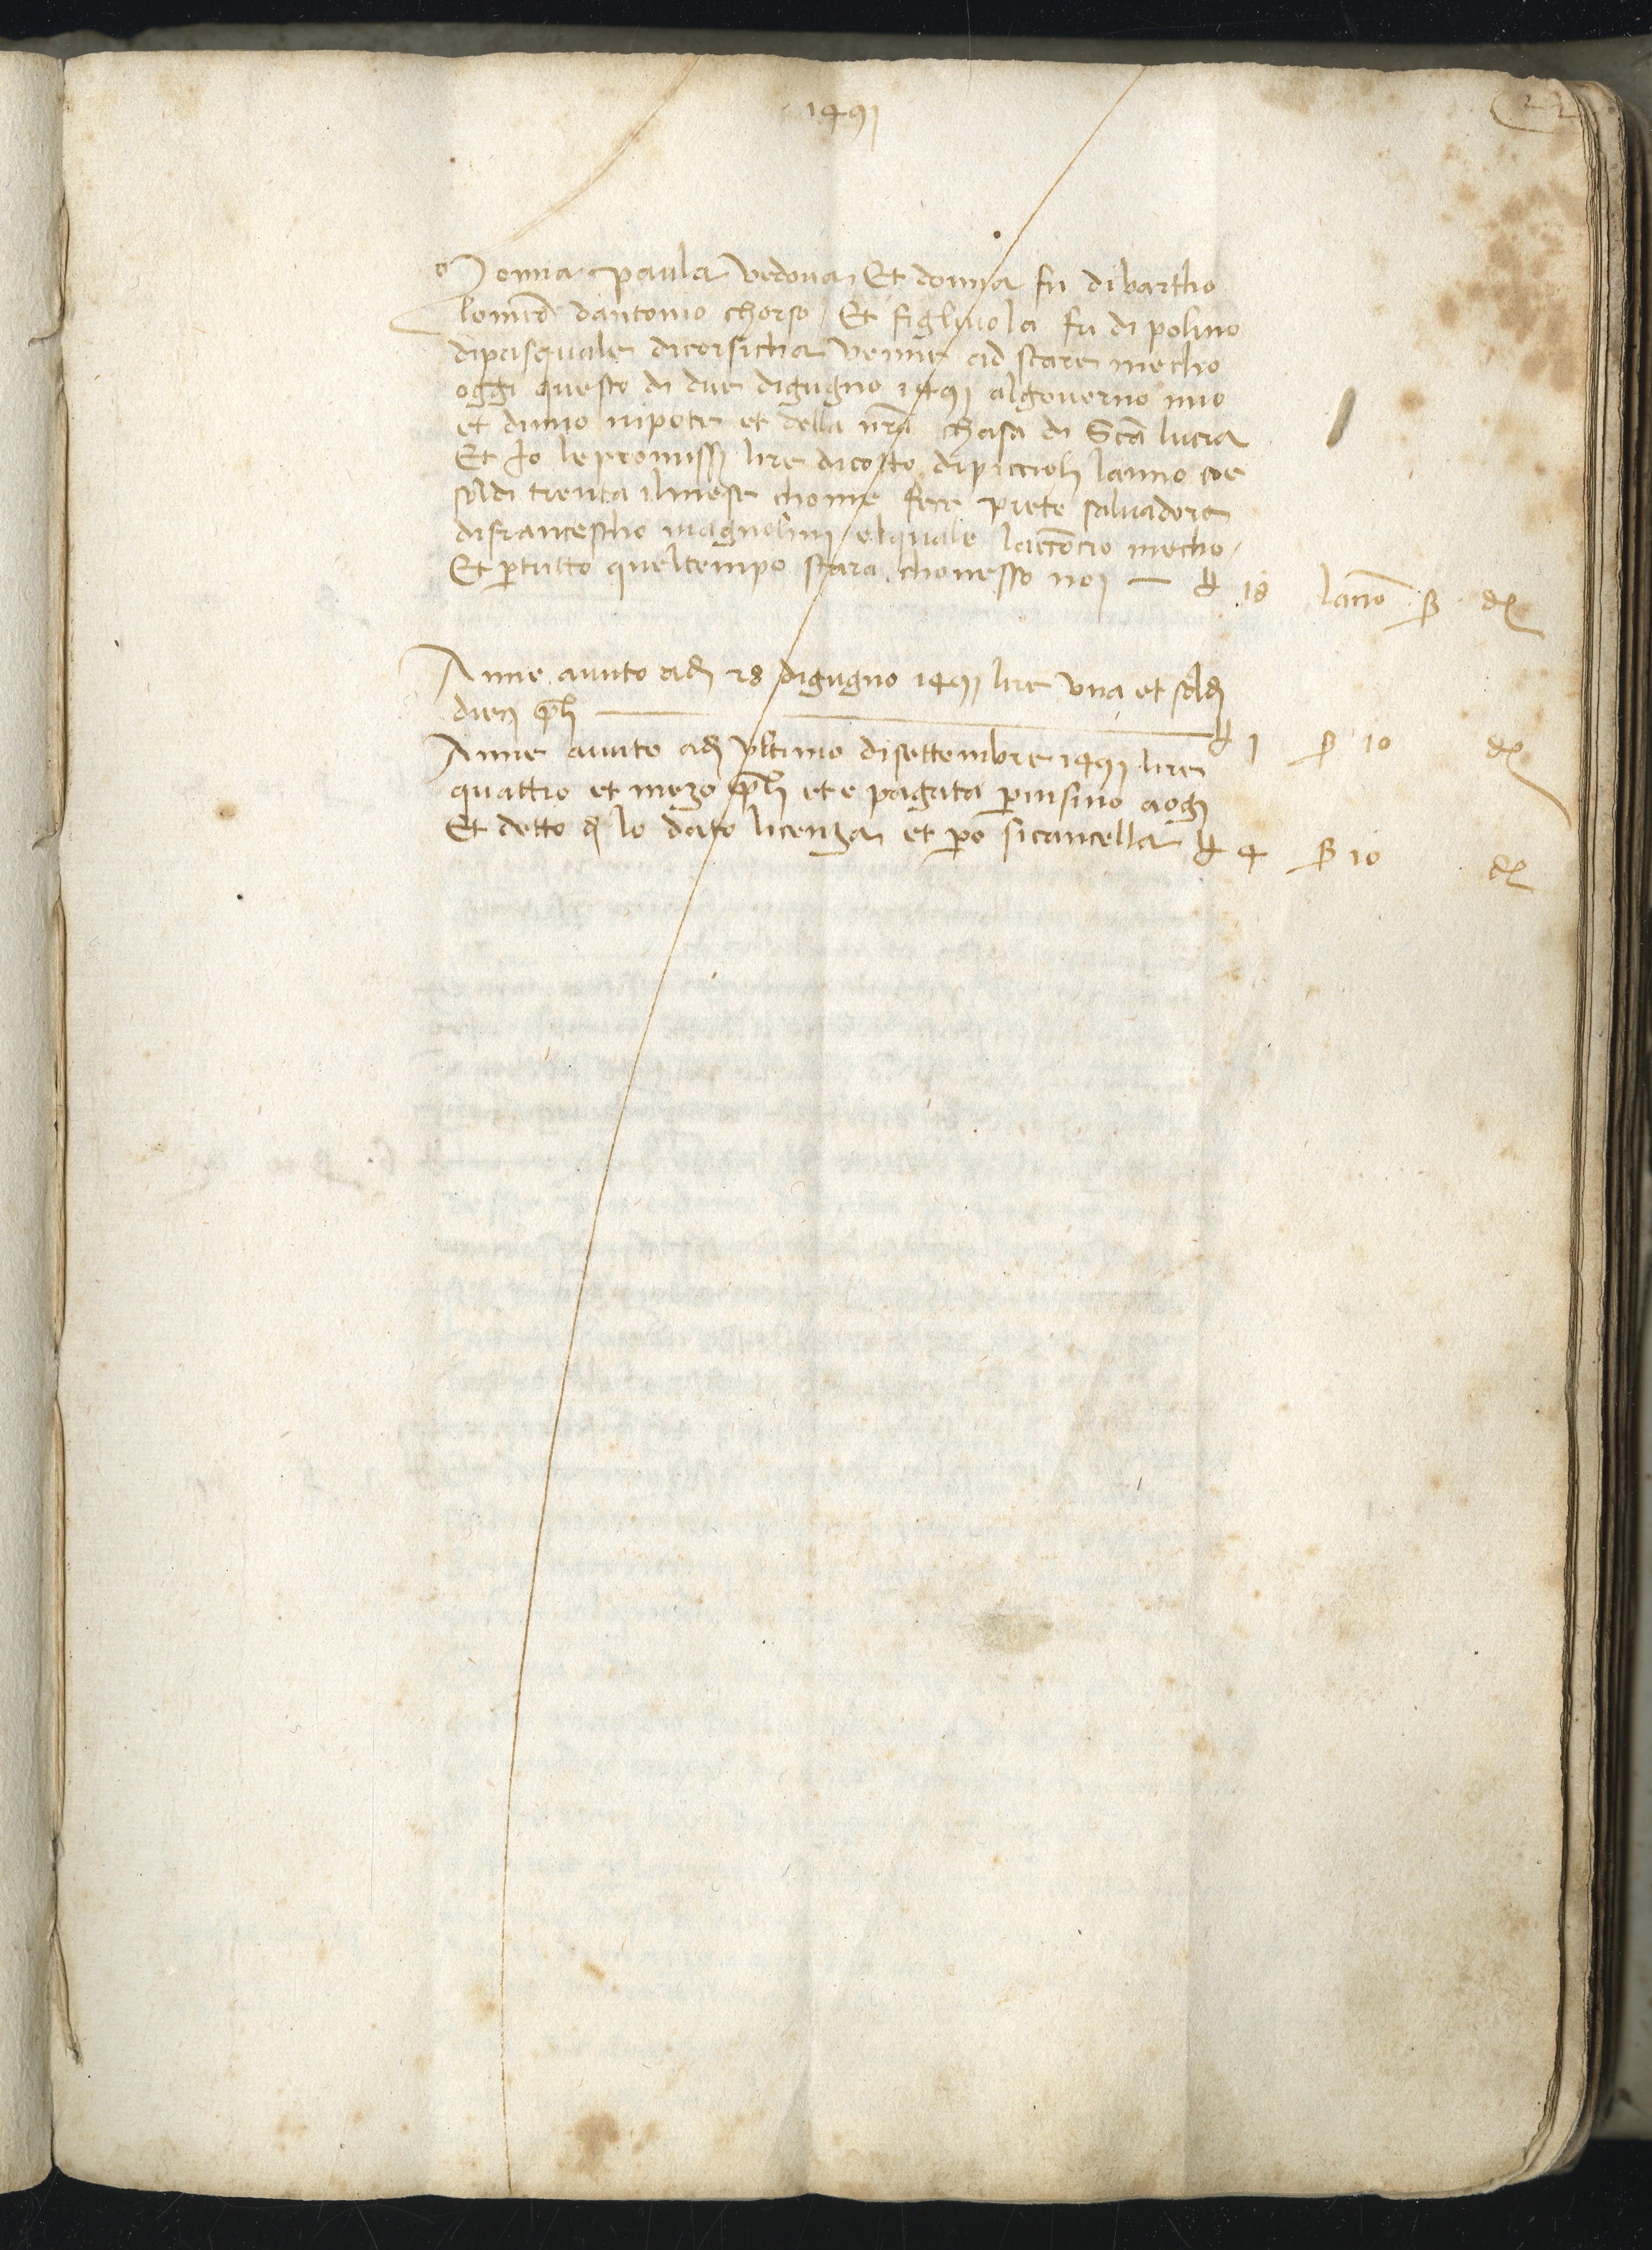 1491
22
Donna paula vedova Et donna fu di bartho
lomeo dantonio chorso / Et figliuola fu di polino
dipasquale dicorsicha venne ad stare mecho
oggi questo di due digugno 1491 algoverno mio
et dimio nipote et della nr̃a chasa di Scā lucia
Et Io le promissi lire diciotto dipiccioli lanno cioe
soldi trenta ilmese chome fece prete salvadore
difrancescho magnolini elquale lacconcio mecho /
Et ꝑtutto queltempo stara chonesso noi — ₶ 18 lanno ß ds
Anne avuto adj 28 digugno 1491 lire una et soldj
dieci pli — ₶ 1 ß 10 ds
Anne avuto adj ultimo disettembre 1491 lire
quattro et mezo pli et e pagata ꝑinsino aogi
Et detto dj lo dato licenza et ꝑo sicancella ₶ 4 ß 10 ds